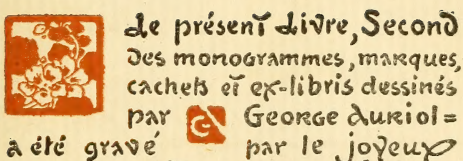 Le présent Livre, Second
Des monogrammes, marques,
cachets et ex-libris dessinés
par George Auriol=
a été gravé par le joyeux